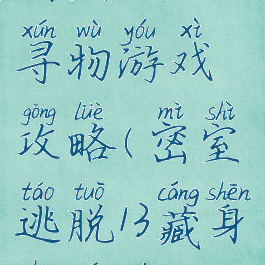 xún wù yóu xì
寻物游戏
gōng lüè mì shì
攻略(密室
táo tuō cáng shēn
逃脱13藏身